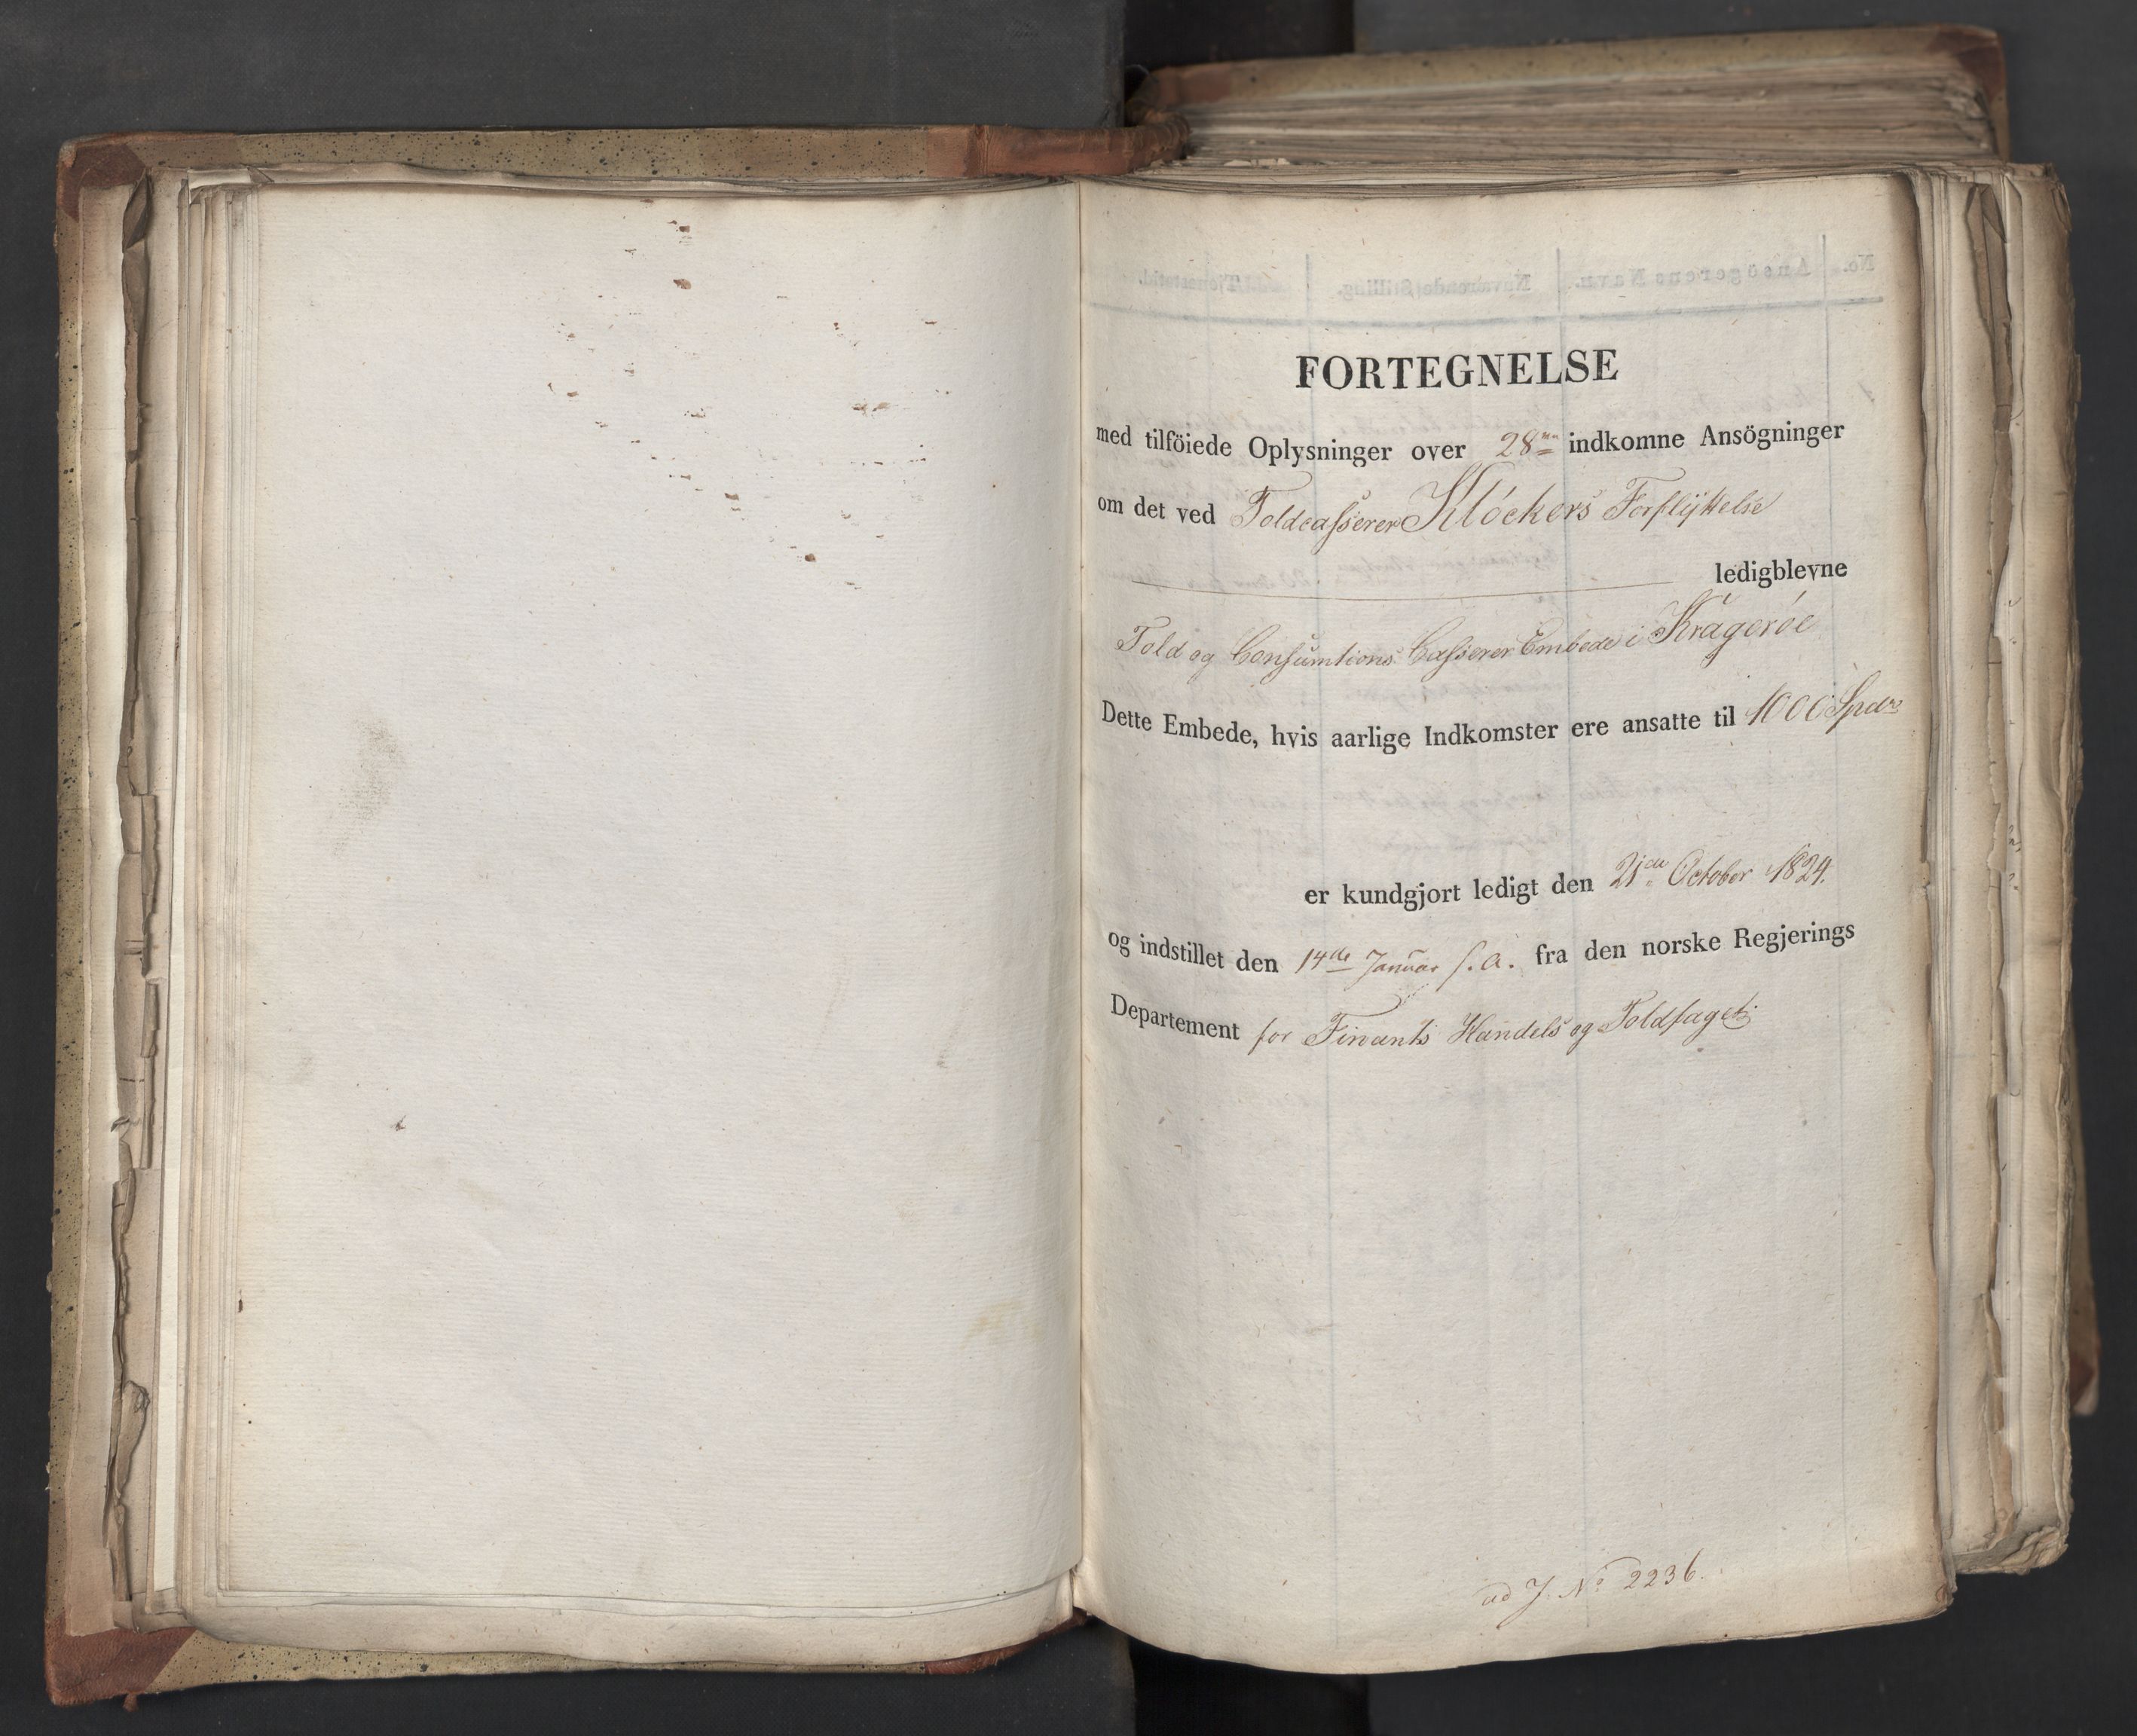 FORTEGNELSE
med tilföiede Oplysninger over 28 indkomne Ansögninger
om det ved Toldcasserer Klöckers Forflÿttelse
ledigblevne
Told og Consumtions Casserer Embede i Kragerøe
Dette Embede, hvis aarlige Indkomster ere ansatte til 1000 Spdr
er kundgjort ledigt den 21de October 1824.
og indstillet den 14de Januar f. a. fra den norske Regjerings
Departement for Finants Handels og Toldfaget
ad J. No 2236.